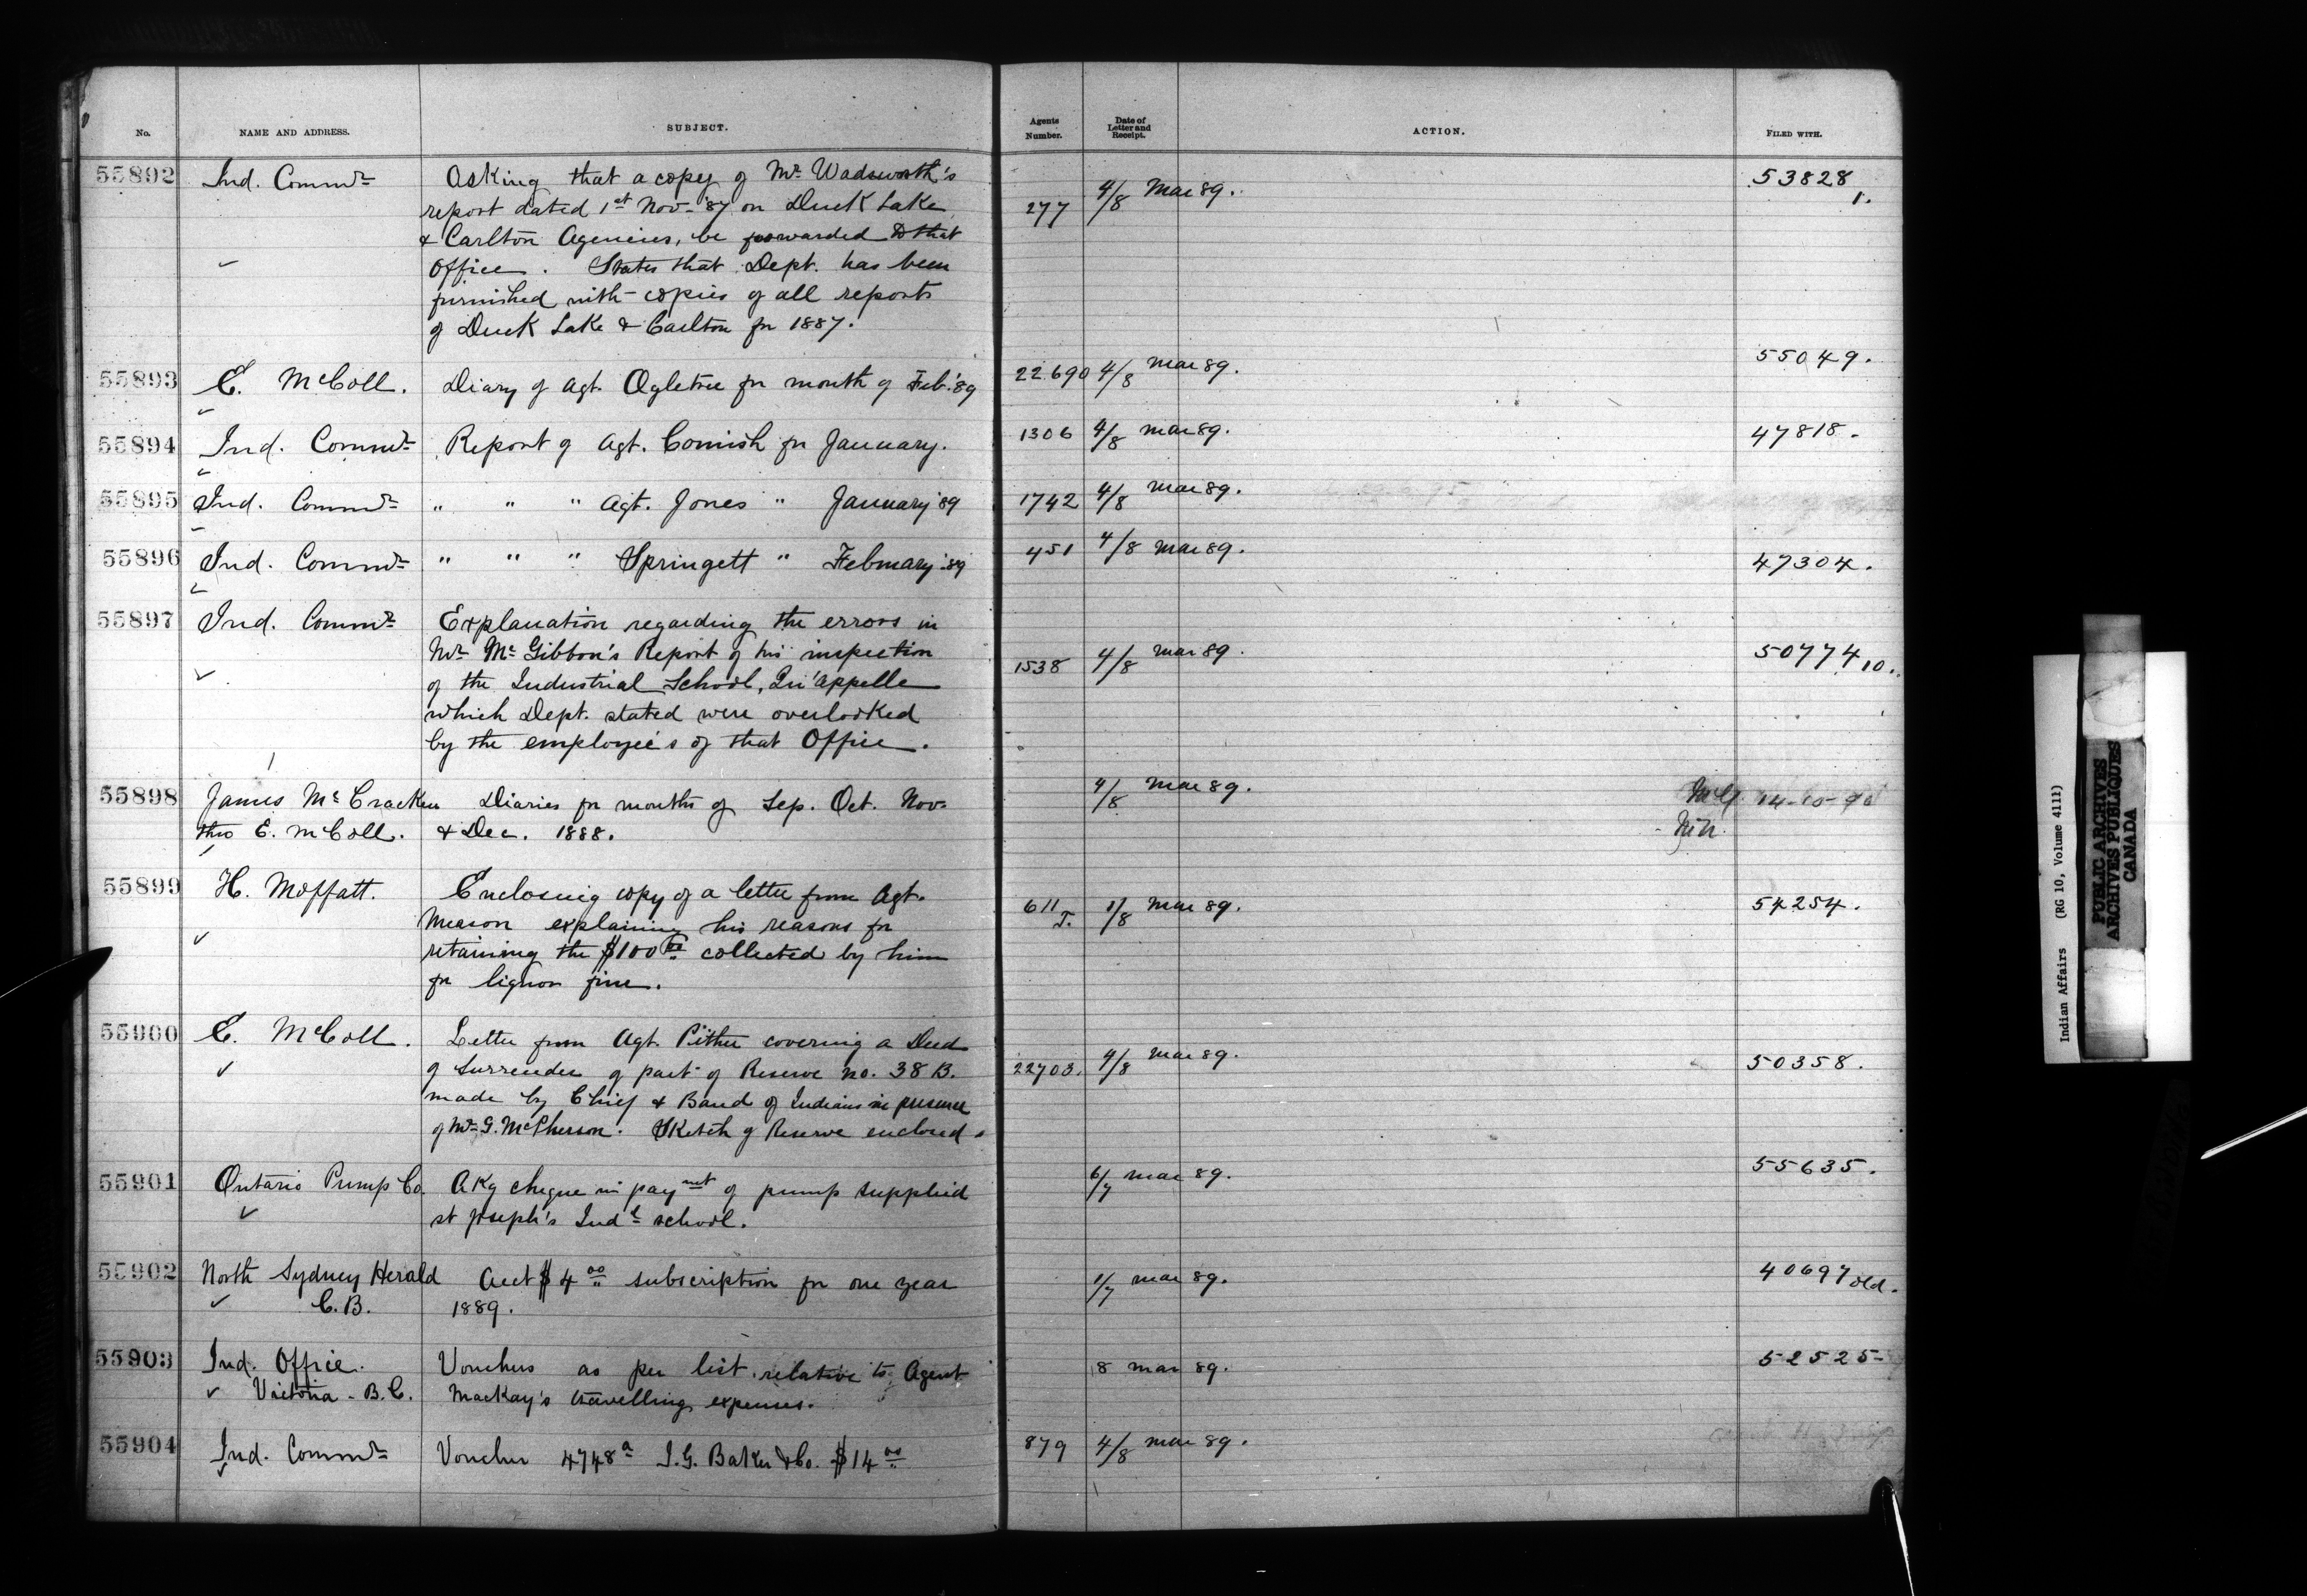 No. NAME AND ADDRESS. SUBJECT. Agents Number. Date of Letter and Receipt. ACTION. FILED WITH.
55892 Ind. Commr Asking that a copy of Mr Wadsworth's 277 4/8 Mar 89. 53828
report dated 1st Nov- '87 on Duck Lake 1.
& Carlton Agencies, be forwarded to that
Office. States that Dept. has been
furnished with copies of all reports
of Duck Lake & Carlton for 1887.
55893 E. McColl. Diary of Agt. Ogletree for month of Feb. '89 22.690 4/8 Mar 89. 55049.
55894 Ind. Commr Report of Agt. Cornish for January. 1306 4/8 Mar 89. 47818.
55895 Ind. Commr " " " Agt. Jones " January '89 1742 4/8 Mar 89.
55896 Ind. Commr " " " Springett " February '89 451 4/8 Mar 89. 47304.
55897 Ind. Commr Explanation regarding the errors in
Mr McGibbon's Report of his inspection 1538 4/8 Mar 89. 50774 10.
of the Industrial School, Qu'Appelle
which Dept. stated were overlooked
by the employee's of that Office.
55898 James McCracken Diaries for months of Sep. Oct. Nov- 4/8 Mar 89. 14-10-90
thro E. McColl. & Dec. 1888.
55899 H. Moffatt. Enclosing copy of a letter from Agt. 611 J. 1/8 Mar 89. 54254.
Meason explaining his reasons for
retaining the $100 00 collected by him
for liquor fine.
55900 E. McColl. Letter from Agt. Pither covering a Deed 22703. 4/8 Mar 89. 50358.
of Surrender of part of Reserve no. 38 B.
made by Chief & Band of Indians in presence
of Mr G. McPherson. Sketch of Reserve enclosed.
55901 Ontario Pump Co. Akg cheque in paymt of pump supplied 6/7 Mar 89. 55635.
St Joseph's Indl school.
55902 North Sydney Herald Acct $4 00 subscription for one year 1/7 Mar 89. 40697 old.
C.B. 1889.
55903 Ind. Office. Vouchers as per list relative to Agent 8 Mar 89. 52525
Victoria - B.C. MacKay's travelling expenses.
55904 Ind. Commr Voucher 4748a I.G. Baker & Co. $14 00 879 4/8 Mar 89.
Indian Affairs (RG 10, Volume 4111)
PUBLIC ARCHIVES
ARCHIVES PUBLIQUES
CANADA